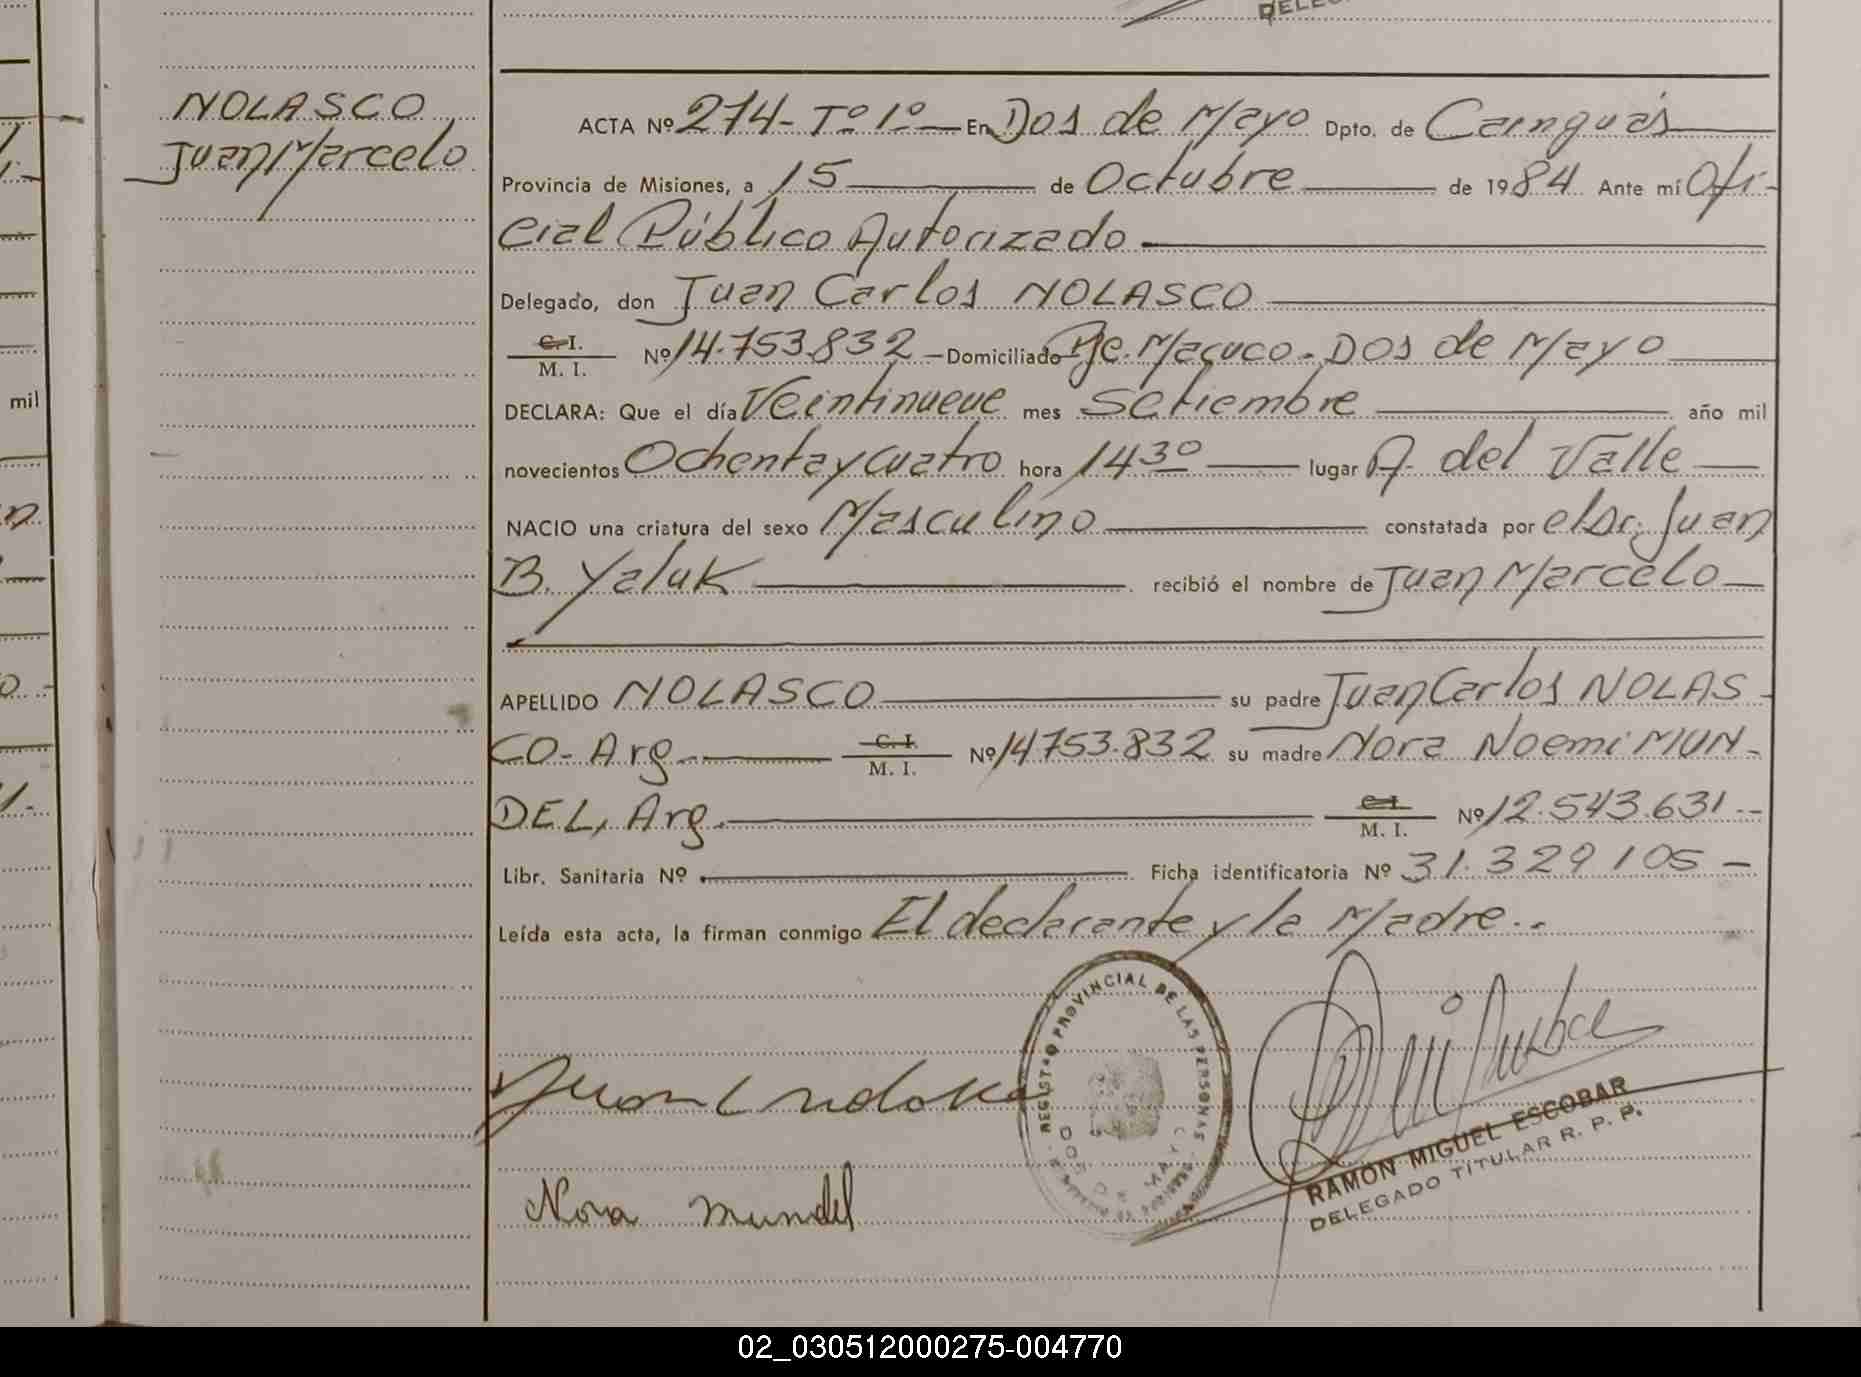 DELEG
NOLASCO
Juan Marcelo
ACTA Nº 274- Tº 1º — En Dos de Mayo Dpto. de Cainguás
Provincia de Misiones, a 15 de Octubre de 1984 Ante mí Ofi-
cial Público Autorizado
Delegado, don Juan Carlos NOLASCO
C. I.
M. I. Nº 14.753.832 - Domiciliado Pje. Macuco - Dos de Mayo
DECLARA: Que el día Veintinueve mes Setiembre año mil
novecientos Ochenta y cuatro hora 14 30 lugar A. del Valle
NACIO una criatura del sexo Masculino constatada por el Dr. Juan
B. Yaluk recibió el nombre de Juan Marcelo
APELLIDO NOLASCO su padre Juan Carlos NOLAS-
CO- Arg. C. I. M. I. Nº 14753.832 su madre Nora Noemi MUN-
DEL, Arg. C. I. M. I. Nº 12.543.631.-
Libr. Sanitaria Nº Ficha identificatoria Nº 31.329 105 -
Leída esta acta, la firman conmigo El declarante y la Madre..
REGISTRO PROVINCIAL DE LAS PERSONAS
DOS DE MAYO
Nora Mundel
RAMON MIGUEL ESCOBAR
DELEGADO TITULAR R. P. P.
mil
02_030512000275-004770